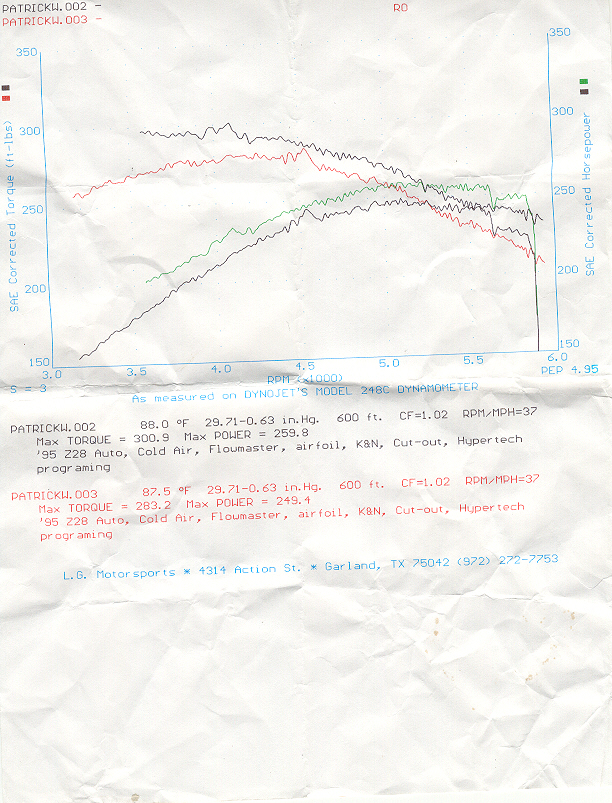 PATRICKW.002 - RO
PATRICKW.003 -
350
300
250
200
150
SAE Corrected Torque (ft-lbs)
350
300
250
200
150
SAE Corrected Horsepower
3.0 3.5 4.0 4.5 5.0 5.5 6.0
RPM (x1000)
S = 3
PEP 4.95
As measured on DYNOJET'S MODEL 248C DYNAMOMETER
PATRICKW.002 88.0 °F 29.71-0.63 in.Hg. 600 ft. CF=1.02 RPM/MPH=37
Max TORQUE = 300.9 Max POWER = 259.8
'95 Z28 Auto, Cold Air, Flowmaster, airfoil, K&N, Cut-out, Hypertech
programing
PATRICKW.003 87.5 °F 29.71-0.63 in.Hg. 600 ft. CF=1.02 RPM/MPH=37
Max TORQUE = 283.2 Max POWER = 249.4
'95 Z28 Auto, Cold Air, Flowmaster, airfoil, K&N, Cut-out, Hypertech
programing
L.G. Motorsports * 4314 Action St. * Garland, TX 75042 (972) 272-7753